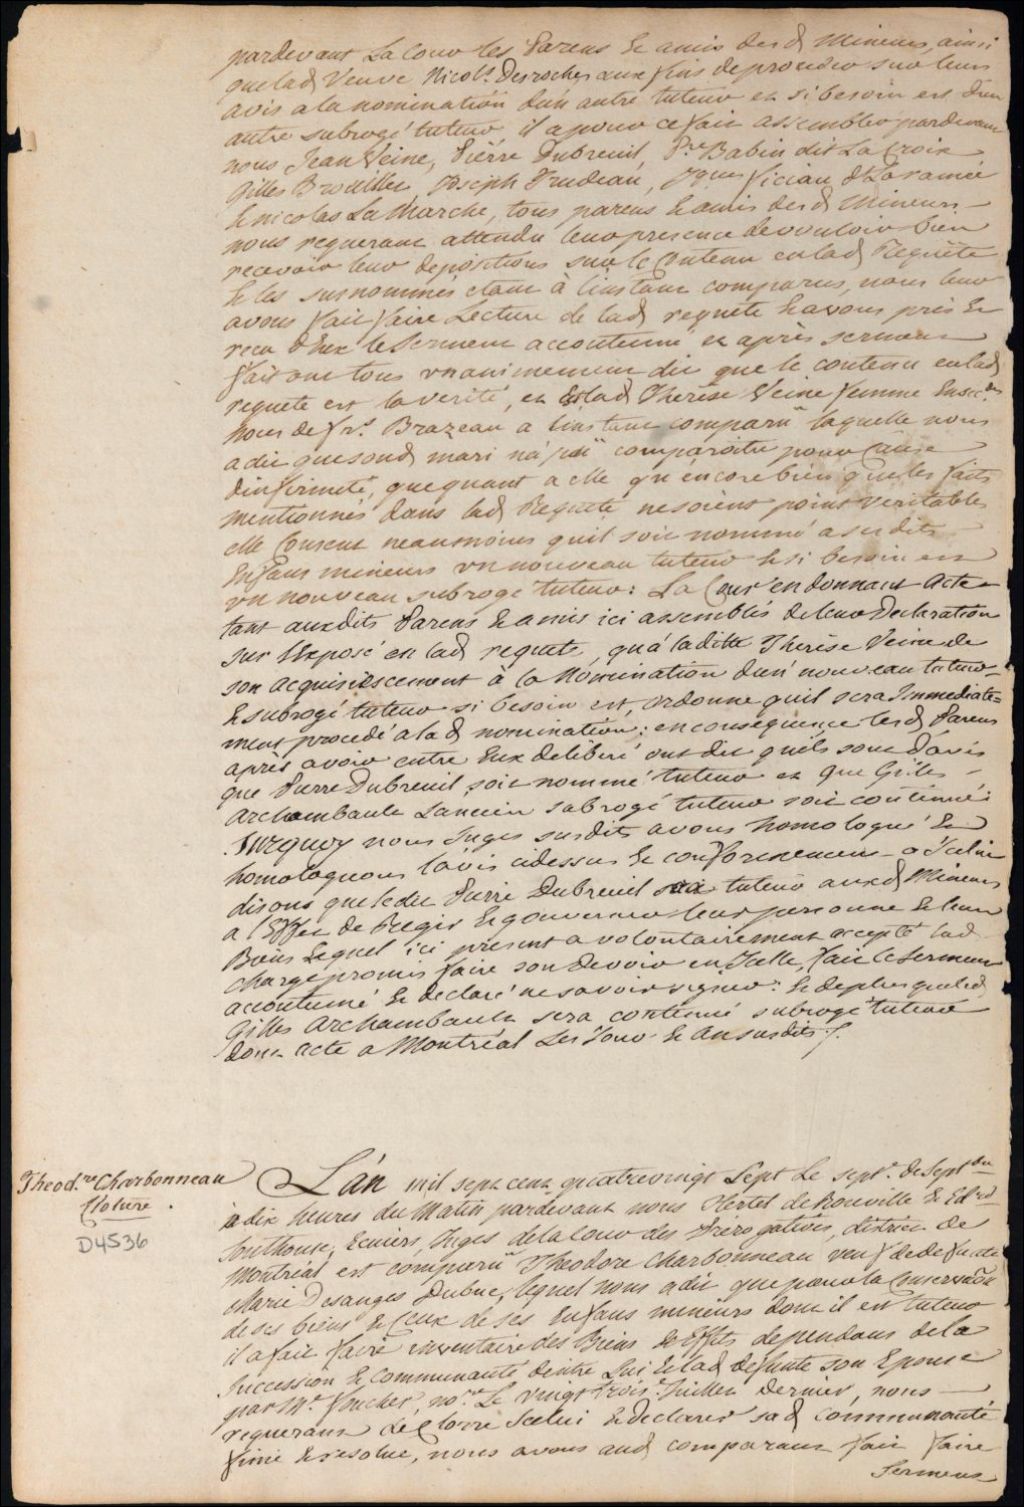 pardevant La Cour les Parens & amis des d Mineurs, ainsi
que lad Veuve Nicols. Desroches aux fins de proceder sur leurs
avis a la nomination d'un autre tuteur et si besoin est d'un
autre subrogé tuteur, il a pour ce fait assembler pardevant
nous Jean Veine, Pierre Dubreuil, Pre. Babin dit La Croix
Gilles Brouillet, Joseph Trudeau, Laramée
& nicolas La Marche, tous parens & amis des d Mineurs
nous requerant attendu leur presence de vouloir bien
recevoir leur depositions sur le Contenu en lad Requête
& les susnommés étant à l'instant comparus, nous leur
avons fait faire Lecture de lad requete & avons pris &
recu d'Eux le Serment accoutumé et après serment
fait ont tous unanimement dit que le contenu en lad
requete est la verité, et Est lad Therèse Veine femme En
Noces de frs. Brazeau a l'instant comparu laquelle nous
a dit que son d mari n'a pû comparoitre pour Cause
d'infirmité, que quant a elle qu'encore bien que les faits
mentionnés dans lad Requete ne soient point veritables
elle Consent neanmoins qu'il soit nommé a ses dits
Enfans mineurs un nouveau tuteur & si besoin est
un nouveau subrogé tuteur : La Cour en donnant Acte
tant aux dits Parens & amis ici assemblés de leur Declaration
sur l'Exposé en lad requete, qu'à la ditte Therèse Veine de
son acquiescement à la Nomination d'un nouveau tuteur
& subrogé tuteur si besoin est, ordonne qu'il sera Immediate=
ment procedé a la d nomination ; en consequence les d Parens
après avoir entre Eux deliberé ont dit qu'ils sont d'avis
que Pierre Dubreuil soit nommé tuteur et que Gilles
Archambault L'ancien subrogé tuteur soit continué :
Surquoy nous Juges susdits avons homologué &
homologuons l'avis cidessus & conformement a Icelui
disons que ledit Pierre Dubreuil sera tuteur aux d Mineurs
a l'Effet de Regir & gouverner leur personne & leur
Biens Lequel ici present a volontairement accepté lad
charge promis faire son Devoir en Icelle, fait le Serment
accoutumé & declaré ne savoir signer : & de plus que led
Gilles Archambault sera continué subrogé tuteur
dont acte a Montréal Les Jour & An susdits /.
Theodre. Charbonneau
Cloture.
D4536
L'an mil sept cent quatrevingt Sept Le sept. de Septbre
à dix heures du Matin pardevant nous Hertel de Rouville & Edrd
Southouse, Ecuiers, Juges de la Cour des Prérogatives, district de
Montréal est comparu Theodore Charbonneau veuf de defunte
Marie Desanges Dubuc, lequel nous a dit que pour la Conservation
de ses biens & Ceux de ses Enfans mineurs dont il est tuteur
il a fait faire inventaire des Biens & Effets dependans de la
Succession & Communauté d'entre Lui & lad defunte son Epouse
par Me. Foucher, nore Le vingt trois Juillet Dernier, nous
requerant de Clorre Icelui & declarer sa d communauté
finie & resolue, nous avons aud comparant fait faire
Serment